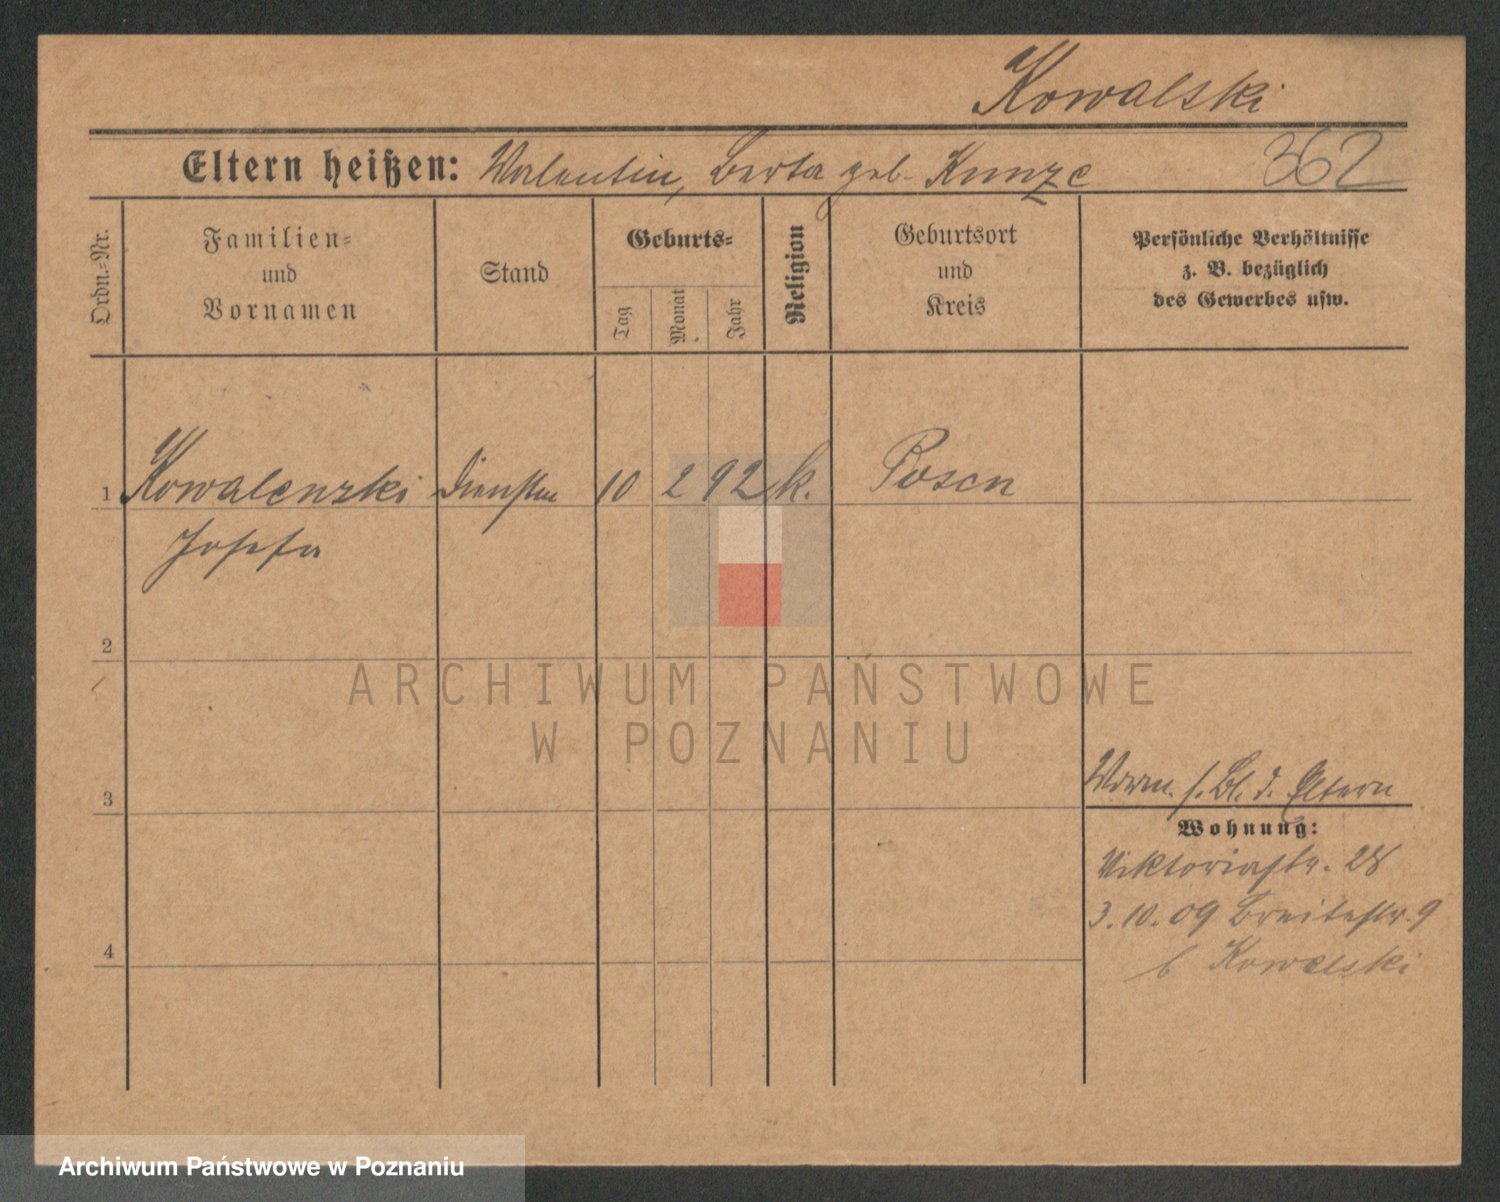 Kowalski
Eltern heißen: Valentin, Berta geb. Kunze
362
Ordn.-Nr.
Familien-
und
Vornamen
Stand
Geburts-
Tag
Monat
Jahr
Religion
Geburtsort
und
Kreis
Persönliche Verhältnisse
z. B. bezüglich
des Gewerbes usw.
1 Kowalenzki 10 2 92 k. Posen
Josefa
2
ARCHIWUM PAŃSTWOWE
W POZNANIU
3
s. Bl. d. Eltern
Wohnung:
Viktoriastr. 28
3.10.09 Breitestr. 9
b Kowalski
4
Archiwum Państwowe w Poznaniu